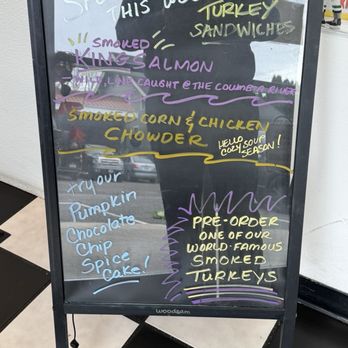 THIS WE
TURKEY
SANDWICHES
SMOKED
KING SALMON
LINE CAUGHT @ THE COLUMBIA RIVER
SMOKED CORN & CHICKEN
CHOWDER
HELLO
COZY SOUP
SEASON!
try our
Pumpkin
Chocolate
Chip
Spice
Cake!
PRE-ORDER
ONE OF OUR
WORLD-FAMOUS
SMOKED
TURKEYS
woodsam